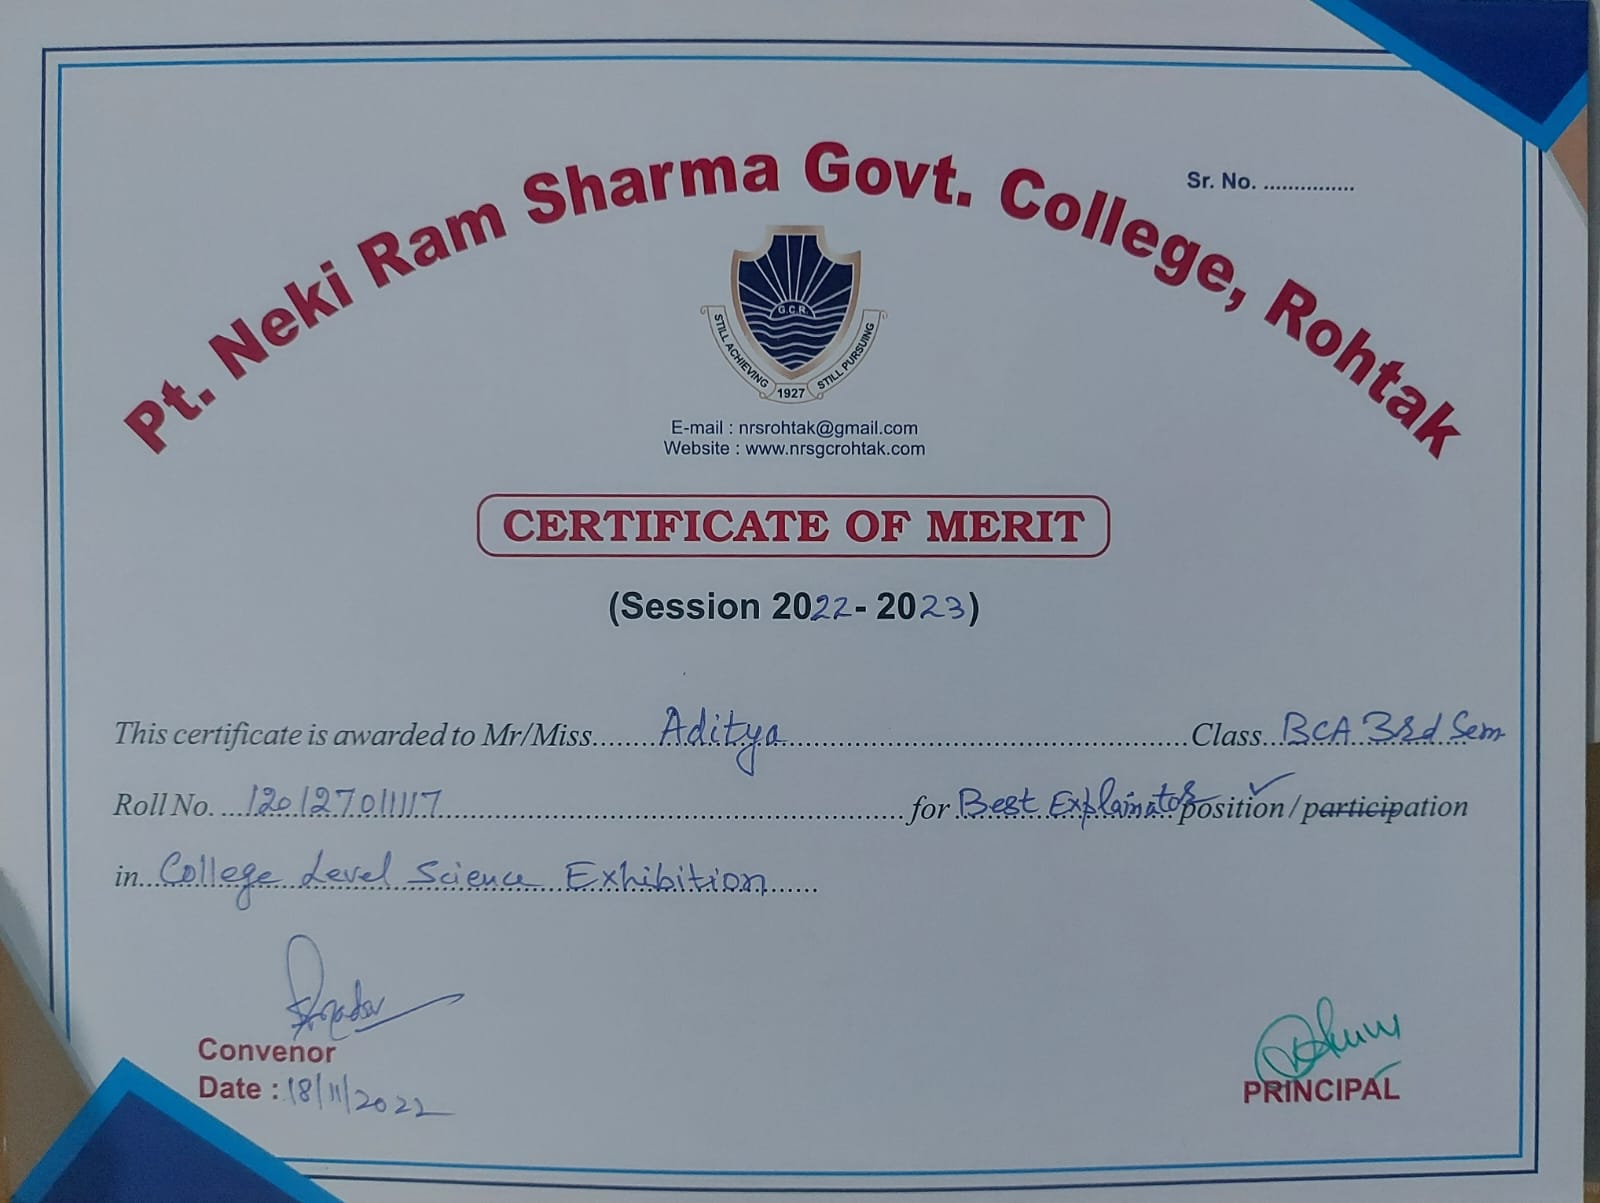 Pt. Neki Ram Sharma Govt. College, Rohtak
Sr. No. ...............
G.C.R.
STILL ACHIEVING 1927 STILL PURSUING
E-mail : nrsrohtak@gmail.com
Website : www.nrsgcrohtak.com
CERTIFICATE OF MERIT
(Session 2022- 2023)
This certificate is awarded to Mr/Miss.......Aditya.......Class..BCA 3rd Sem
Roll No. ...120127011117.......for Best Explainator position/participation
in...College Level Science Exhibition......
Convenor
Date : 18/11/2022
PRINCIPAL